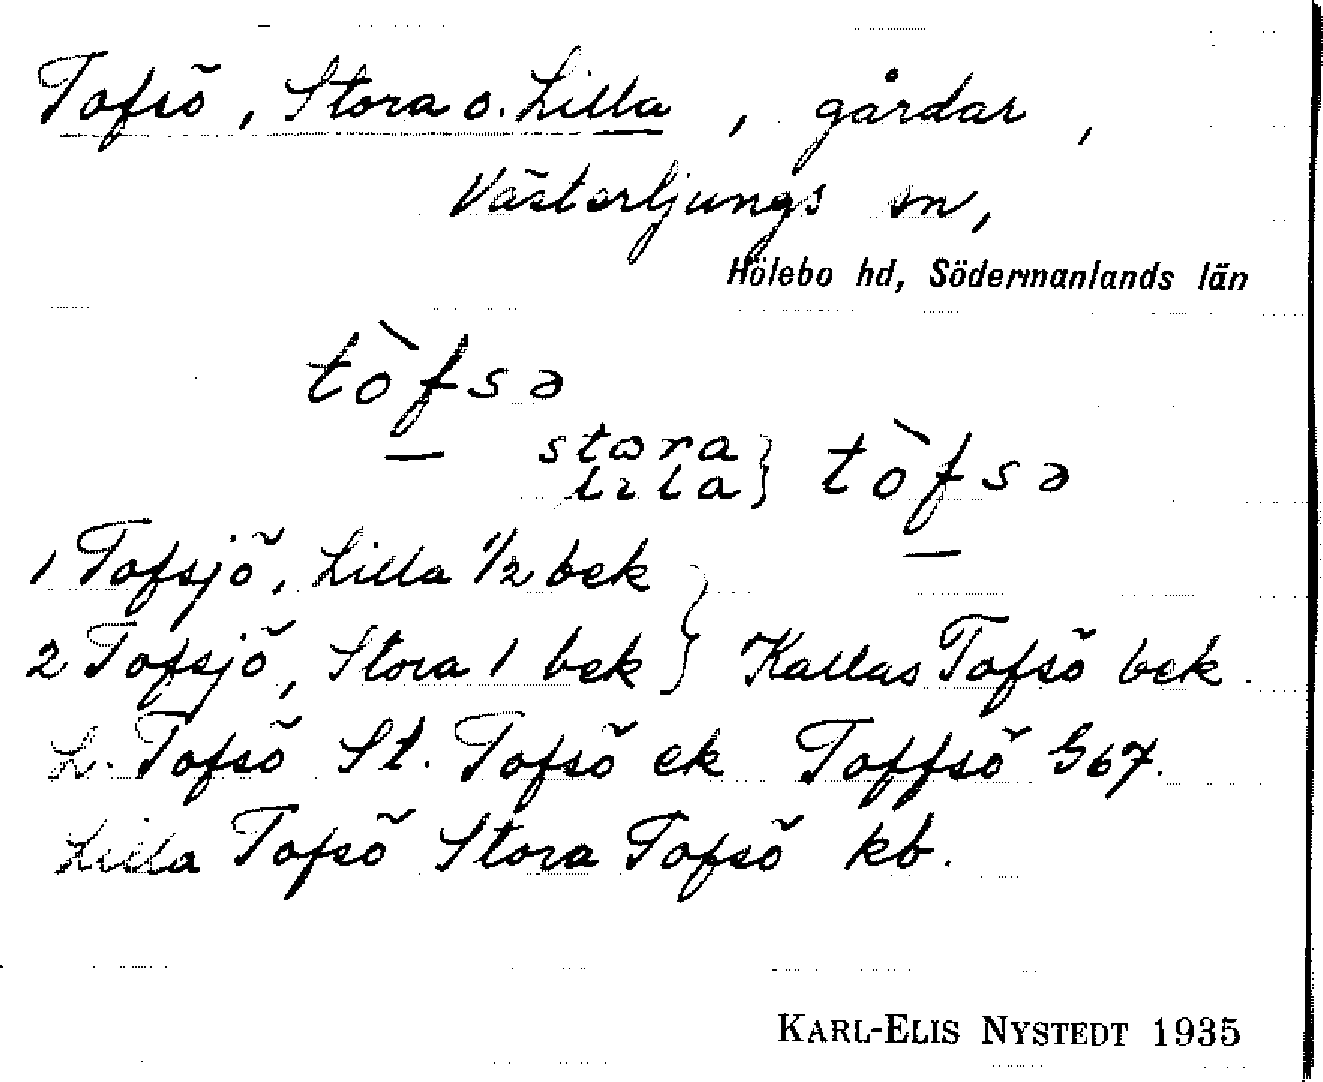 Tofsö, Stora o. Lilla, gårdar,
Västerljungs sn,
Hölebo hd, Södermanlands län
tòfsə
stora } tòfsə
lila }
1 Tofsjö, Lilla 1/2 bek }
2 Tofsjö, Stora 1 bek } Kallas Tofsö bek.
L. Tofsö St. Tofsö ek Toffsö G67.
Lilla Tofsö Stora Tofsö kb.
KARL-ELIS NYSTEDT 1935